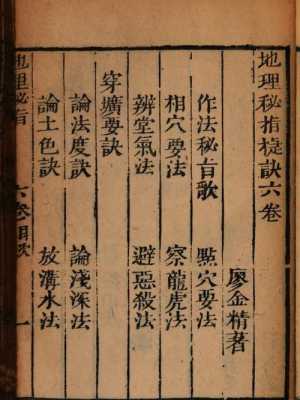 地理秘指㨯訣六卷
廖金精著
作法秘旨歌　點穴要法
相穴要法　察龍虎法
辨堂氣法　避惡殺法
穿壙要訣
論法度訣　論淺深法
論土色訣　放溝水法
六卷目次　一